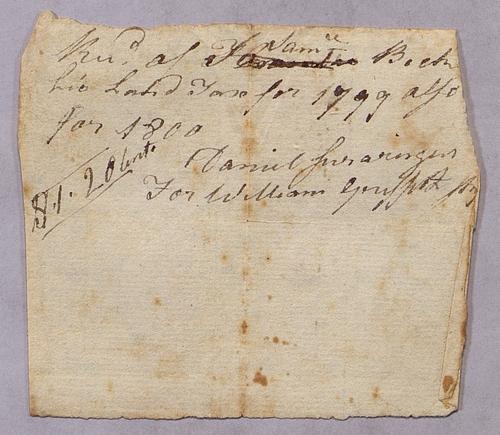 Recd of Saml Beck
his Land Tax for 1799 also
for 1800
Daniel Swearingen
For William
$1.20 Cents